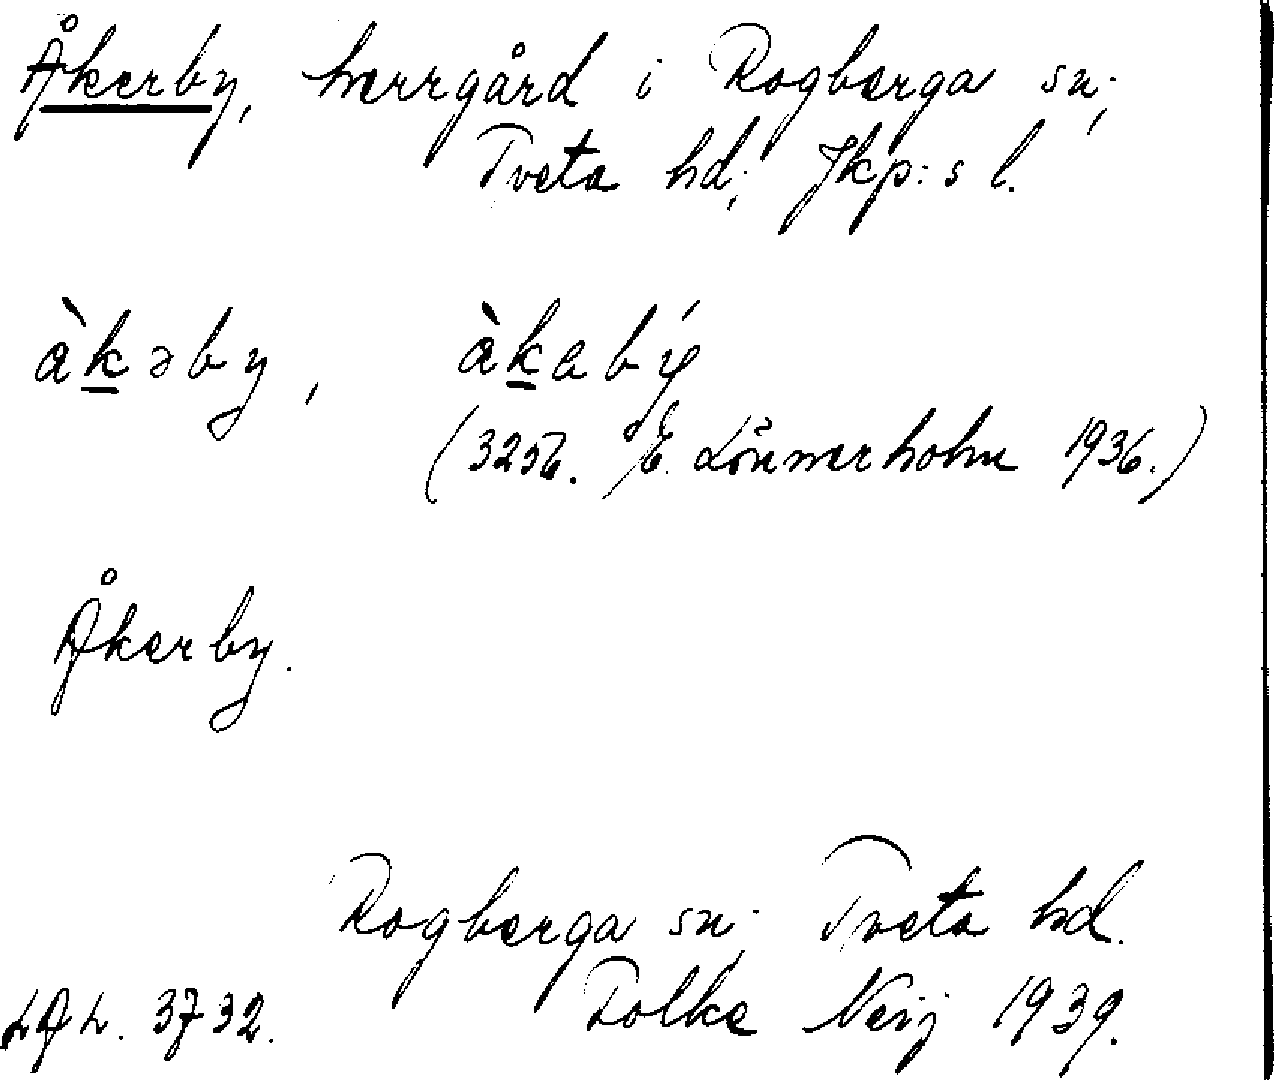 Åkerby, herrgård i Rogberga sn;
Tveta hd; Jkp:s l.
àkəby, àkabý
(3256. E. Lönnerholm 1936.)
Åkerby.
Rogberga sn; Tveta hd.
LAL. 3732. Folke Neij 1939.